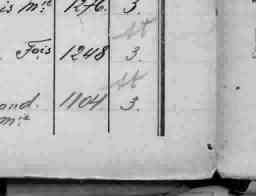 is m:e 1276. 3.
Fois 1248 3.
ond. 1104 3.
m:e